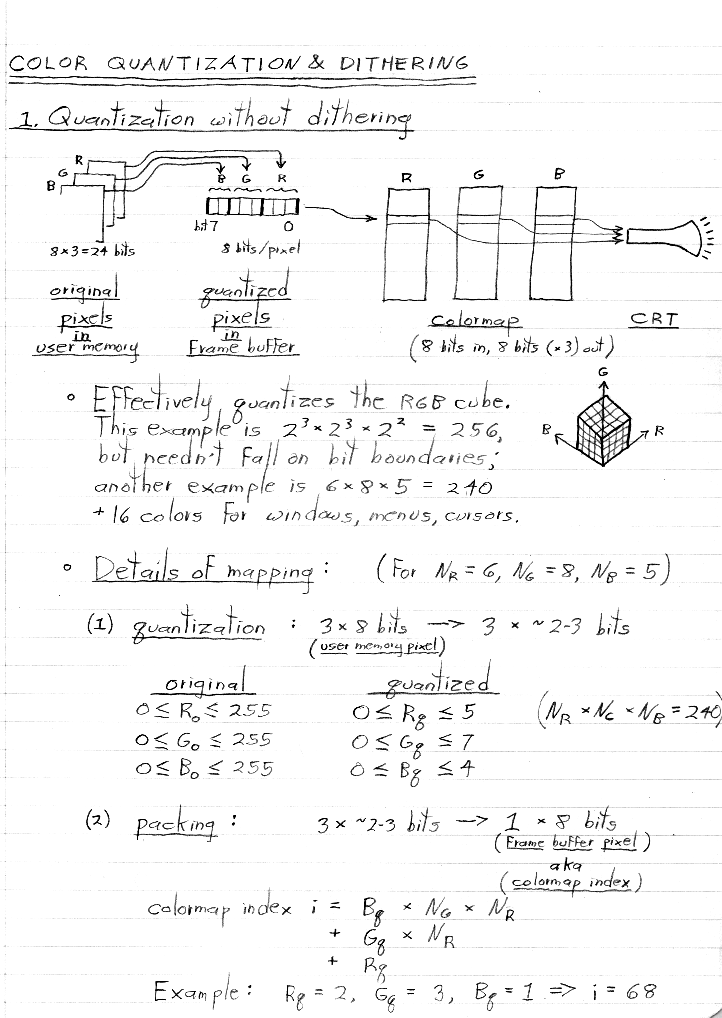 COLOR QUANTIZATION & DITHERING
1. Quantization without dithering
R
G
B
8×3=24 bits
original
pixels
in
user memory
B G R
bit 7 0
8 bits/pixel
quantized
pixels
in
Frame buffer
R G B
Colormap
(8 bits in, 8 bits (×3) out)
CRT
• Effectively quantizes the RGB cube.
This example is 2³ × 2³ × 2² = 256,
but needn't fall on bit boundaries;
another example is 6×8×5 = 240
+ 16 colors for windows, menus, cursors.
G
B R
• Details of mapping: (For N_R = 6, N_G = 8, N_B = 5)
(1) quantization : 3×8 bits –> 3 × ~2-3 bits
(user memory pixel)
original quantized
0 ≤ R₀ ≤ 255 0 ≤ R_q ≤ 5 (N_R × N_G × N_B = 240)
0 ≤ G₀ ≤ 255 0 ≤ G_q ≤ 7
0 ≤ B₀ ≤ 255 0 ≤ B_q ≤ 4
(2) packing : 3× ~2-3 bits –> 1 × 8 bits
(Frame buffer pixel)
aka
(colormap index)
colormap index i = B_q × N_G × N_R
+ G_q × N_R
+ R_q
Example: R_q = 2, G_q = 3, B_q = 1 => i = 68